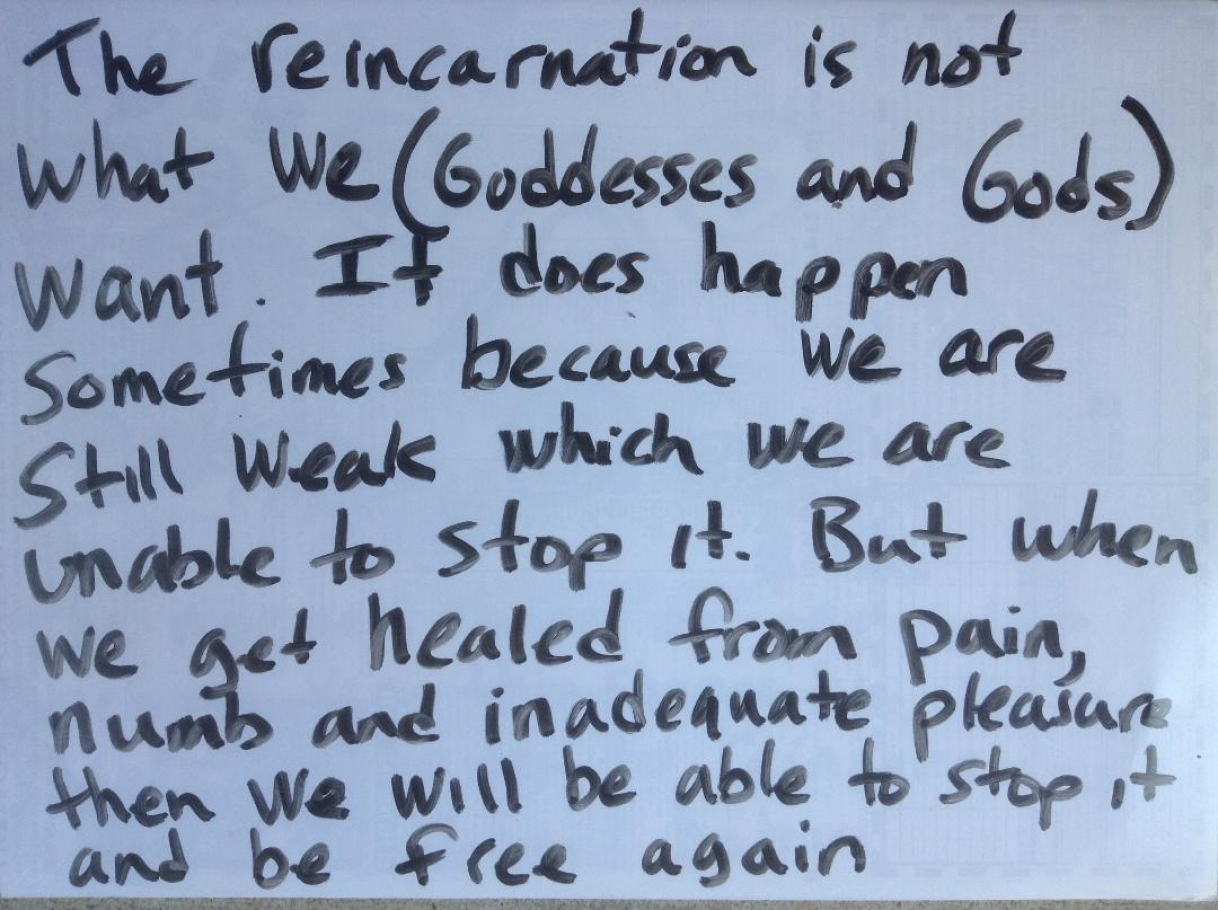 The reincarnation is not
what We (Goddesses and Gods)
want. It does happen
Sometimes because we are
Still Weak which we are
unable to stop it. But when
we get healed from pain,
numb and inadequate pleasure
then We will be able to stop it
and be free again